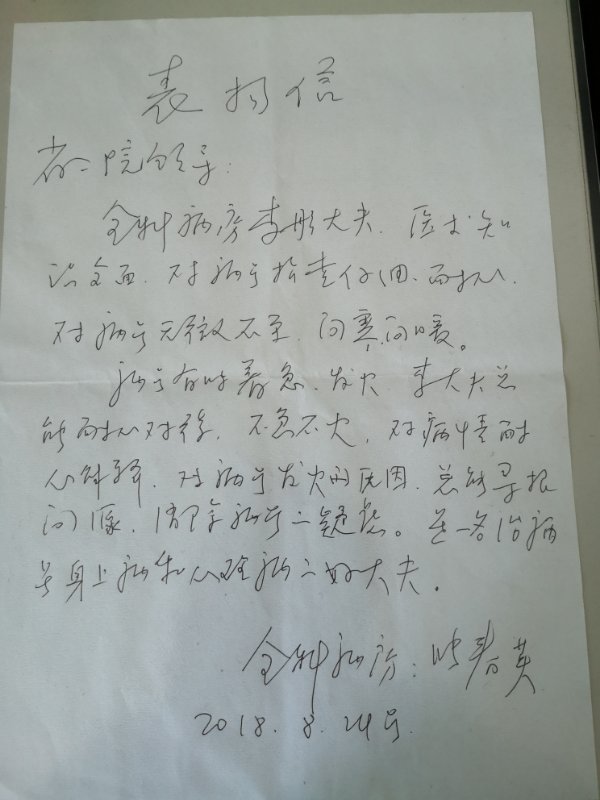 表扬信
省一院领导：
全科病房李彤大夫、医术知
识全面、对病号检查仔细、耐心、
对病号无微不至、问寒问暖。
病号有时着急、发火、李大夫总
能耐心对待、不急不火、对病情耐
心讲解、对病号发火的原因、总能寻根
问源、消除病号之疑惑。是一名治病
号身上病和心理病之好大夫。
全科病房：春英
2018.8.24号